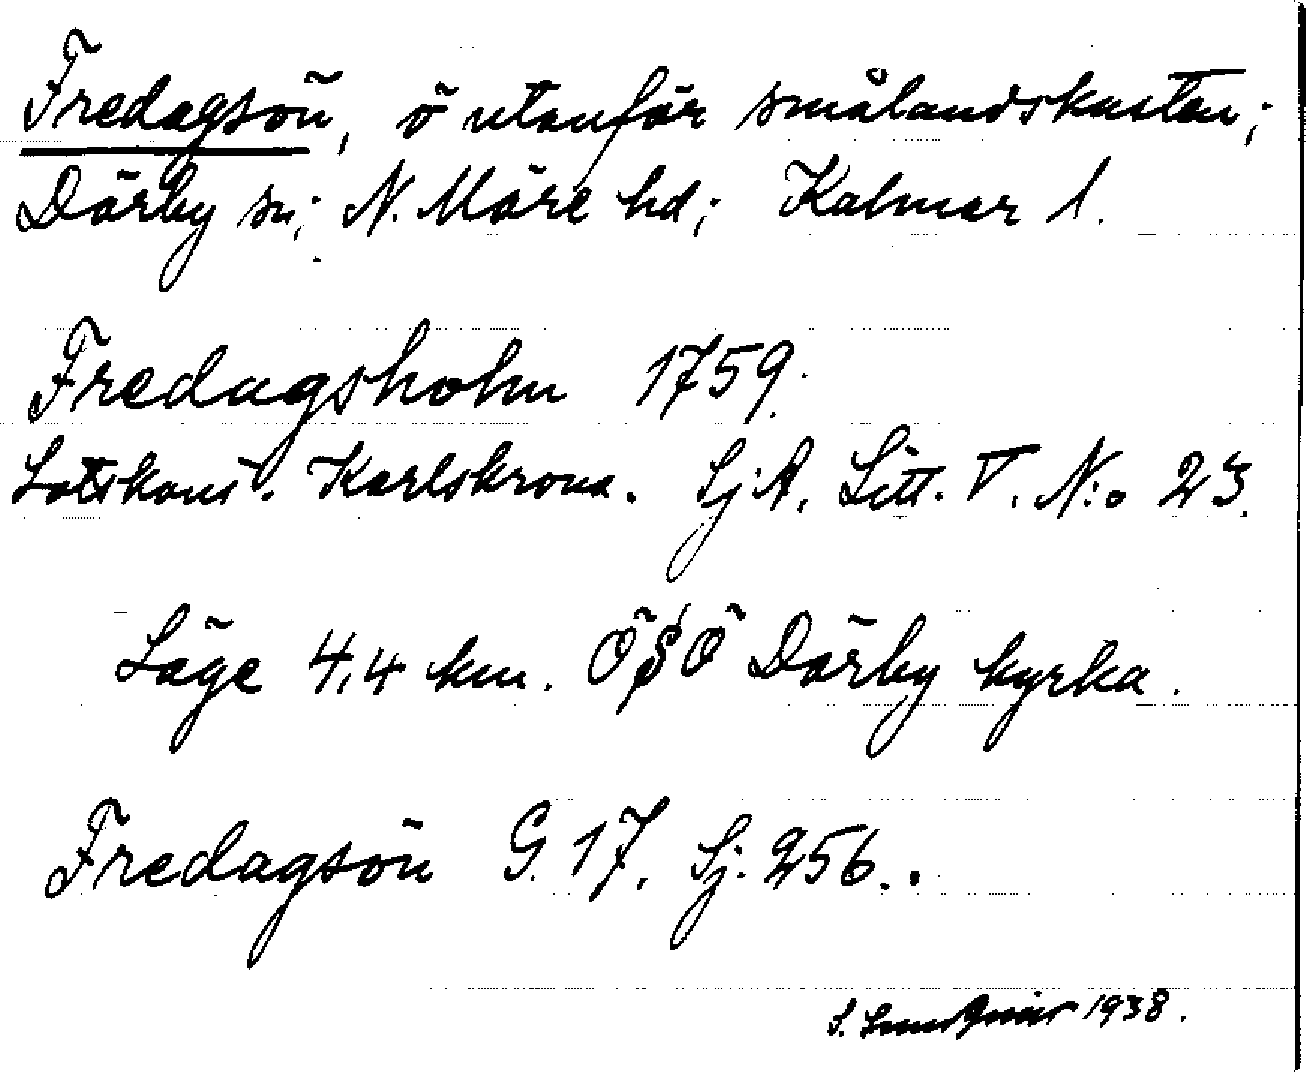 Fredagsön, ö utanför smålandskusten;
Dörby sn; N. Möre hd; Kalmar l.
Fredagsholm 1759.
Lotskont. Karlskrona. SjA, Litt. V. N:o 23.
Läge 4,4 km. ÖSÖ Dörby kyrka.
Fredagsön G. 17. Sj. 256..
S. 1938.